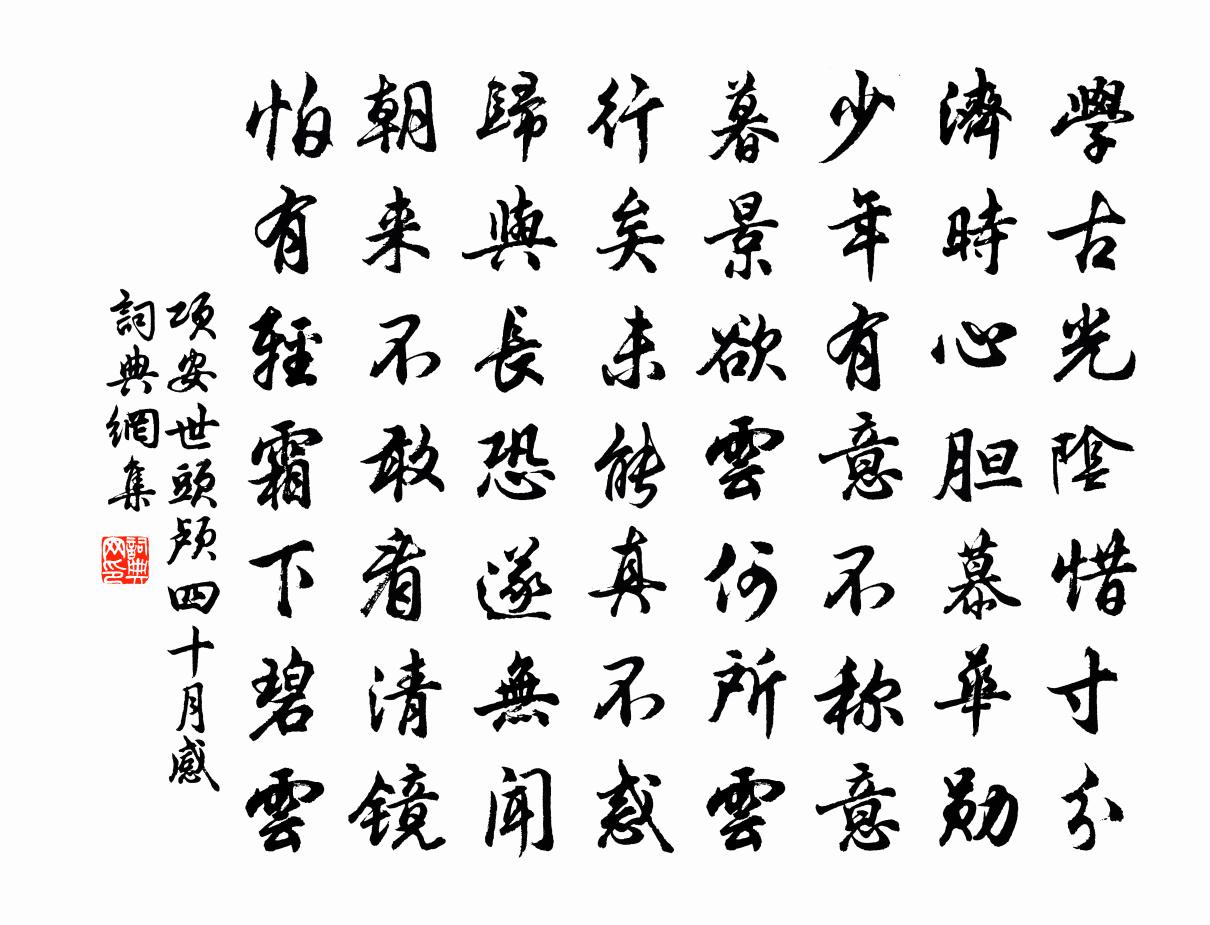 學古光陰惜寸分
濟時心胆慕華勋
少年有意不称意
暮景欲雲何所雲
行矣未能真不惑
歸與長恐遂無聞
朝来不敢看清镜
怕有輕霜下碧雲
項安世頭颅四十月感
詞典網集
詞典网印